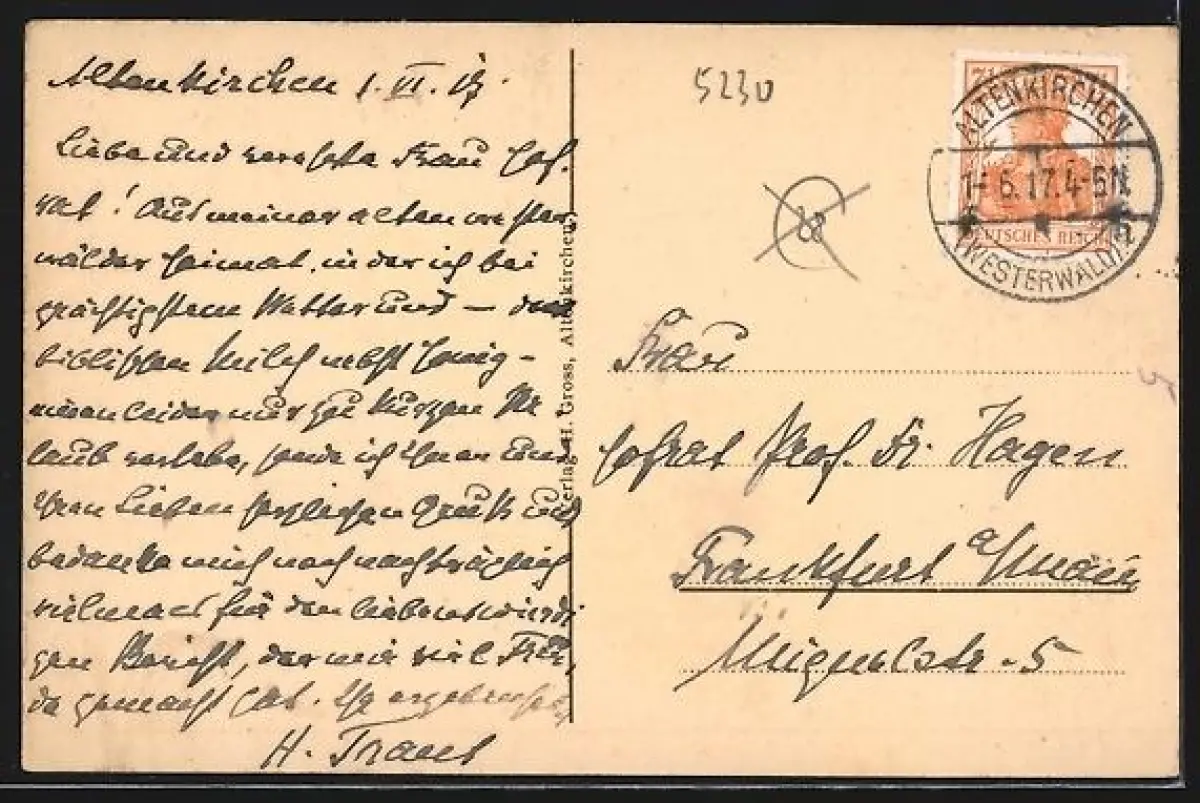 Altenkirchen 1. VI. 17.
Liebe und verehrte Frau Hof-
rat! Aus meiner alten wester-
wälder Heimat, in der ich bei
prächtigstem Wetter und –
biblischen Milch nebst Honig –
einen leider nur zu kurzen Ur-
laub verlebe, sende ich Ihnen und
Ihren Lieben herzlichen Gruß und
bedanke mich noch nachträglich
vielmals für den liebenswürdi-
gen Bericht, der mir viel Freu-
de gemacht hat. Ihr ergebenster
H. Traut
Verlag H. Gross, Altenkirchen.
5230
ALTENKIRCHEN
1. 6. 17. 4-5N.
(WESTERWALD)
DEUTSCHES REICH
Frau
Hofrat Prof. Fr. Hagen
Frankfurt a/Main